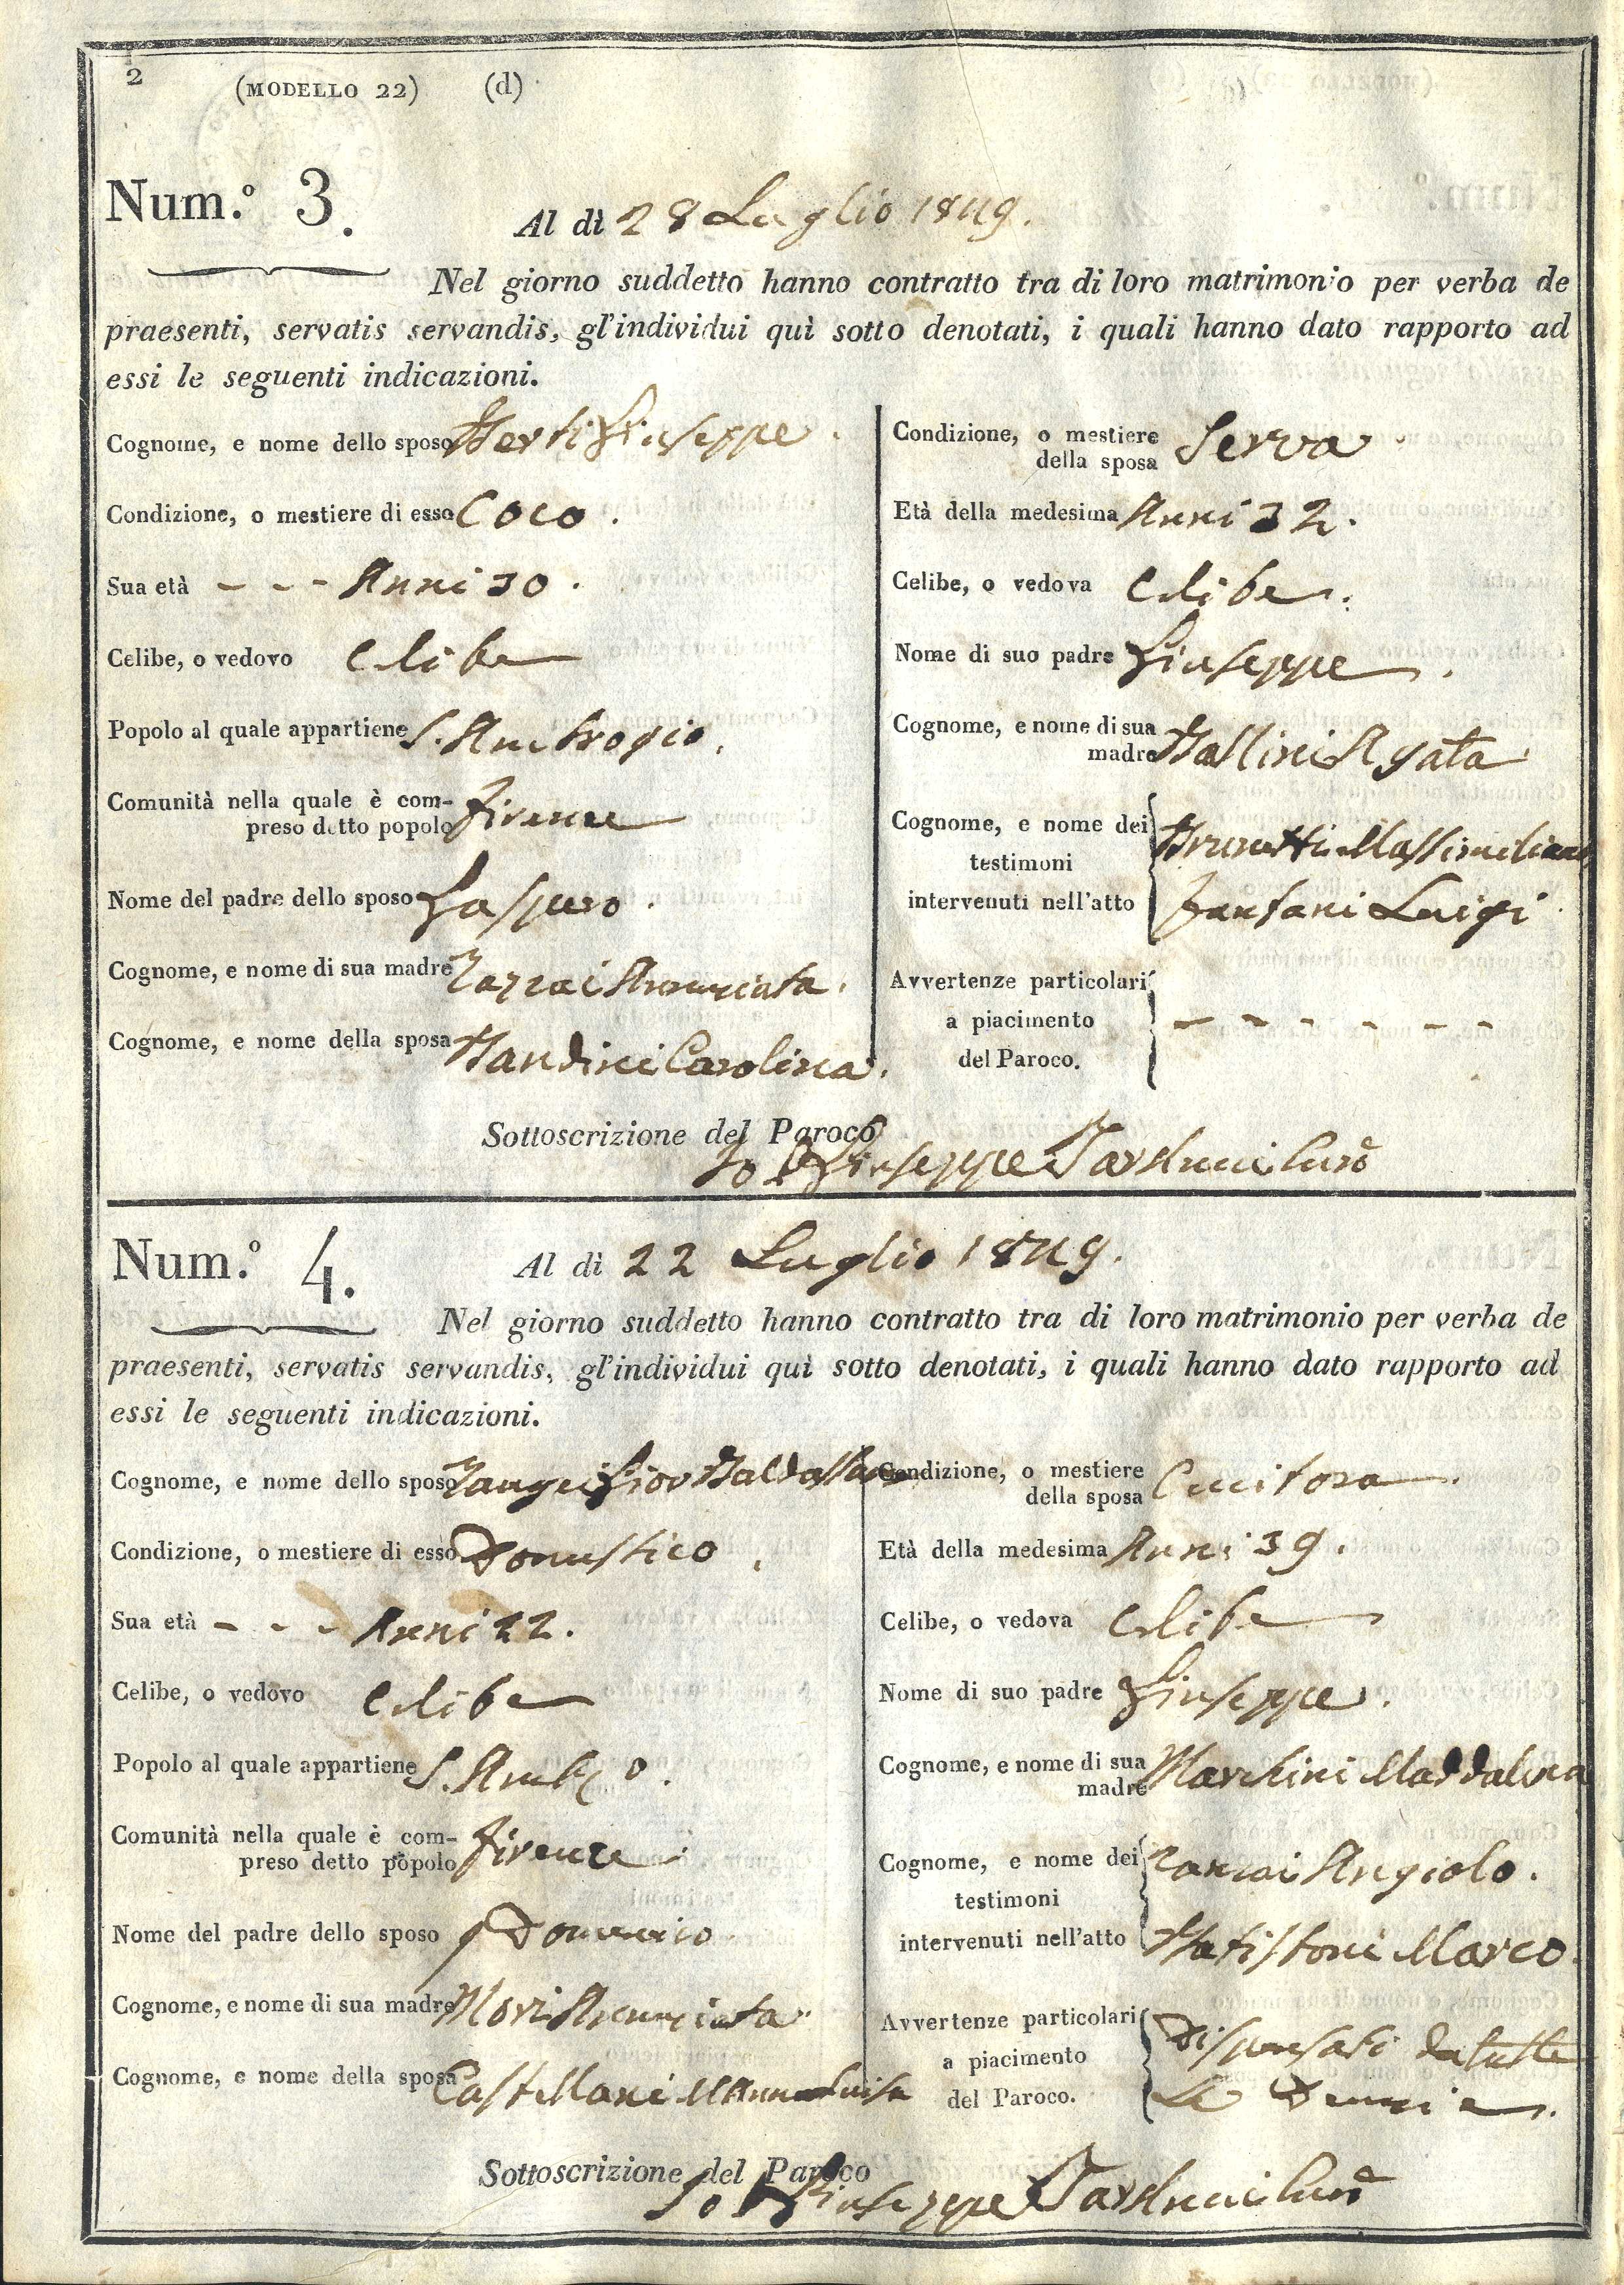 2
(MODELLO 22) (d)
Num.º 3.
Al dì 28 Luglio 1849.
Nel giorno suddetto hanno contratto tra di loro matrimonio per verba de
praesenti, servatis servandis, gl'individui quì sotto denotati, i quali hanno dato rapporto ad
essi le seguenti indicazioni.
Cognome, e nome dello sposo Berti Giuseppe.
Condizione, o mestiere di esso Coco.
Sua età - - - Anni 30.
Celibe, o vedovo Celibe
Popolo al quale appartiene S. Ambrogio.
Comunità nella quale è com-
preso detto popolo Firenze
Nome del padre dello sposo Gaspero.
Cognome, e nome di sua madre Annunziata.
Cognome, e nome della sposa Bandini Carolina.
Condizione, o mestiere
della sposa Serva
Età della medesima Anni 32.
Celibe, o vedova Celibe.
Nome di suo padre Giuseppe.
Cognome, e nome di sua
madre Ballini Agata
Cognome, e nome dei
testimoni
intervenuti nell'atto
Brunetti Massimiliano
Fantani Luigi
Avvertenze particolari
a piacimento
del Paroco.
- - - - - -
Sottoscrizione del Paroco
Io Giuseppe
Num.º 4.
Al dì 22 Luglio 1849.
Nel giorno suddetto hanno contratto tra di loro matrimonio per verba de
praesenti, servatis servandis, gl'individui quì sotto denotati, i quali hanno dato rapporto ad
essi le seguenti indicazioni.
Cognome, e nome dello sposo
Condizione, o mestiere di esso Domestico.
Sua età - - - Anni 22.
Celibe, o vedovo Celibe
Popolo al quale appartiene S.
Comunità nella quale è com-
preso detto popolo Firenze
Nome del padre dello sposo
Cognome, e nome di sua madre Mori Annunziata
Cognome, e nome della sposa Castellani
Condizione, o mestiere
della sposa Cucitora.
Età della medesima Anni 39.
Celibe, o vedova Celibe
Nome di suo padre Giuseppe.
Cognome, e nome di sua
madre Marchini Maddalena
Cognome, e nome dei
testimoni
intervenuti nell'atto
Angiolo.
Batistoni Marco.
Avvertenze particolari
a piacimento
del Paroco.
Dispensati da tutte
Le
Sottoscrizione del Paroco
Io Giuseppe